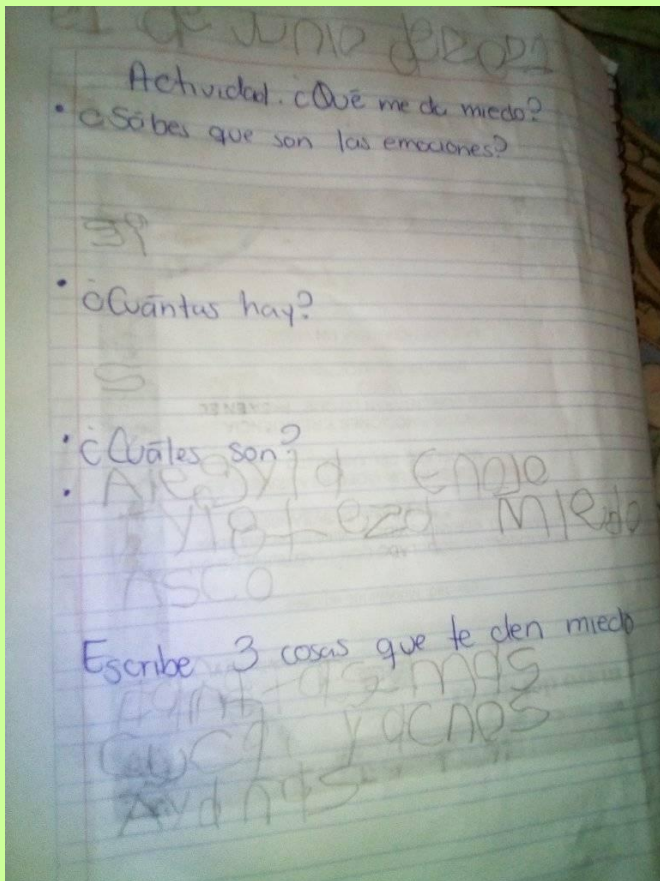 de Junio de 2021
Actividad. ¿Qué me da miedo?
• ¿Sábes que son las emociones?
• ¿Cuántas hay?
5
• ¿Cuáles son?
• Alegyia Enoje
tyisteza Miedo
ASCO
Escribe 3 cosas que te den miedo
Fantasmas
Ayanas